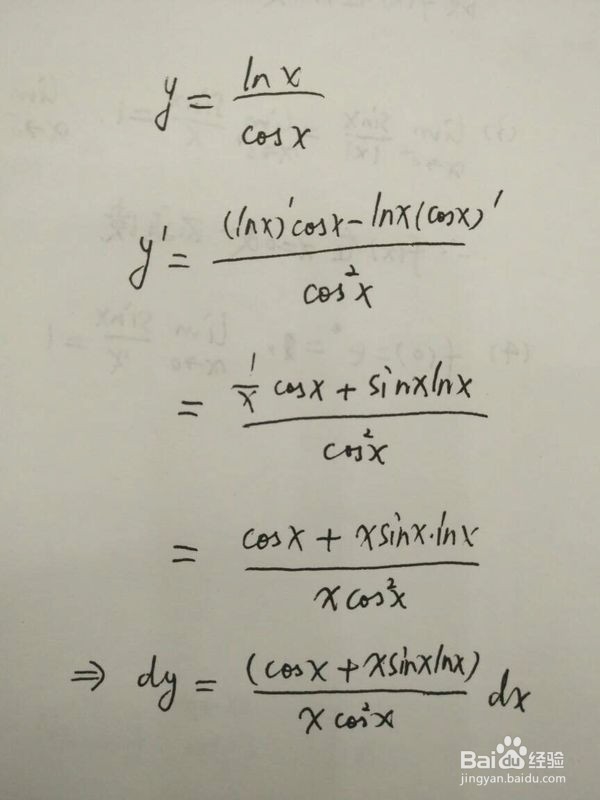 y = \frac{\ln x}{\cos x}
y' = \frac{(\ln x)' \cos x - \ln x (\cos x)'}{\cos^2 x}
= \frac{\frac{1}{x} \cos x + \sin x \ln x}{\cos^2 x}
= \frac{\cos x + x \sin x \cdot \ln x}{x \cos^2 x}
\Rightarrow dy = \frac{(\cos x + x \sin x \ln x)}{x \cos^2 x} dx
Baidu 经验
jingyan.baidu.com